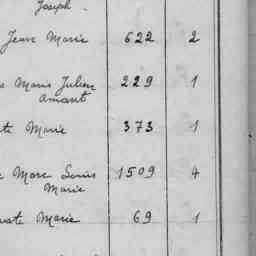 Joseph.
Jean Marie 622 2
Marie Julien 229 1
Amant
Marie 373 1
Marc Louis 1509 4
Marie
Marie 69 1